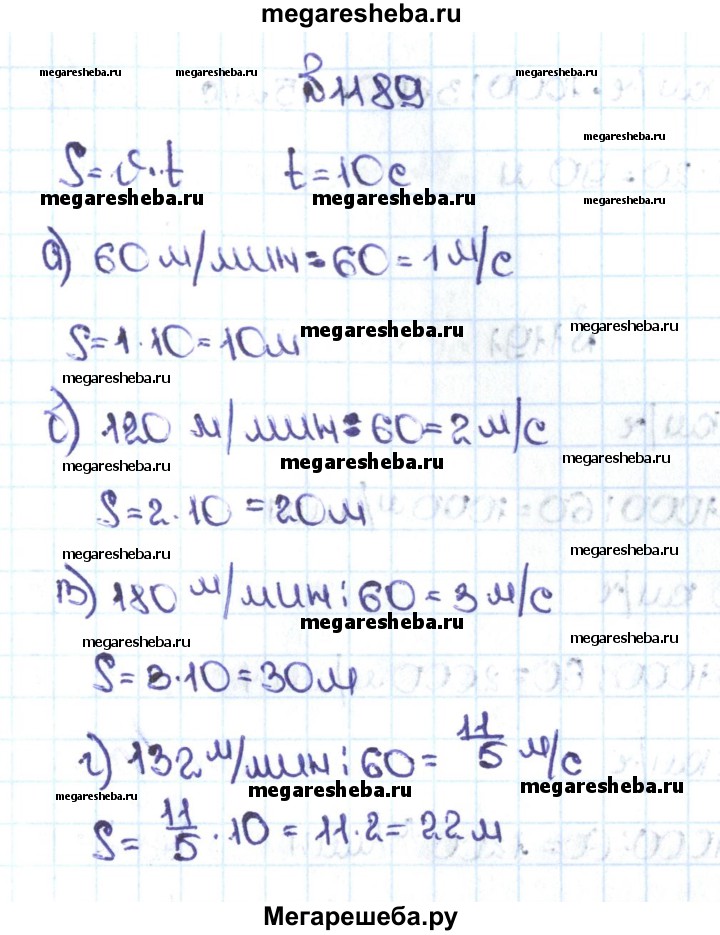 megaresheba.ru
megaresheba.ru megaresheba.ru megaresheba.ru
№1189
megaresheba.ru
S=v·t t=10с
megaresheba.ru megaresheba.ru megaresheba.ru
а) 60 м/мин:60=1 м/с
S=1·10=10м
megaresheba.ru megaresheba.ru
megaresheba.ru
б) 120 м/мин:60=2 м/с
megaresheba.ru megaresheba.ru megaresheba.ru
S=2·10=20м
megaresheba.ru megaresheba.ru
в) 180 м/мин:60=3 м/с
megaresheba.ru
megaresheba.ru megaresheba.ru
S=3·10=30м
г) 132 м/мин:60= 11/5 м/с
megaresheba.ru megaresheba.ru megaresheba.ru
S= 11/5 ·10=11·2=22м
megaresheba.ru
Мегарешеба.ру